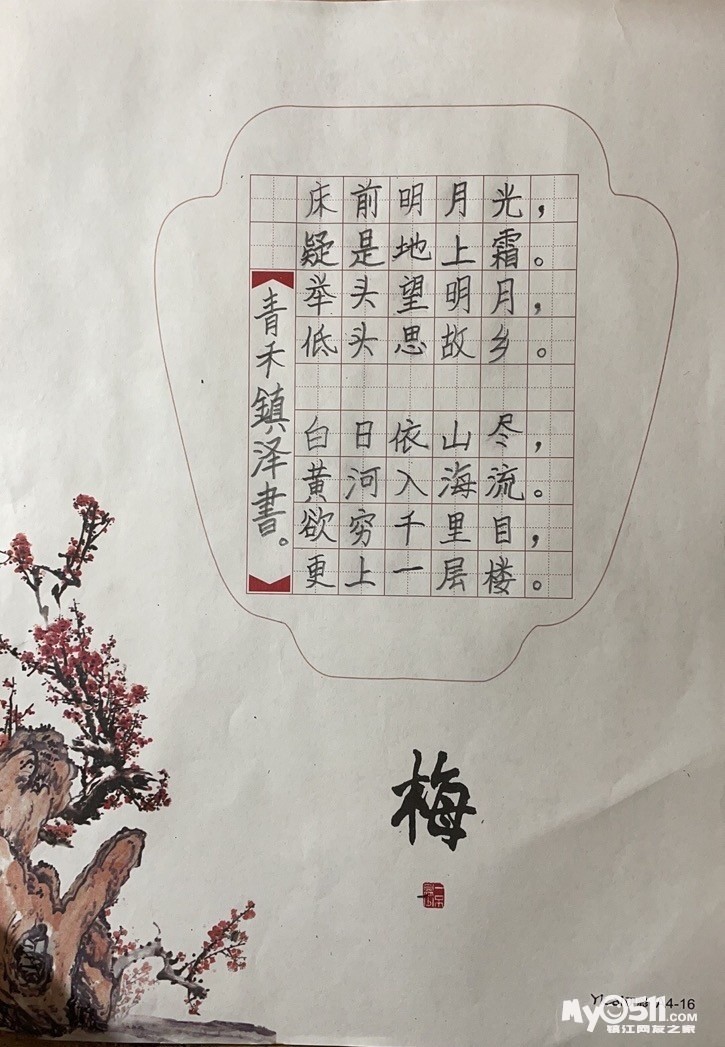 床前明月光，
疑是地上霜。
举头望明月，
低头思故乡。
白日依山尽，
黄河入海流。
欲穷千里目，
更上一层楼。
青禾鎮泽書。
梅
4-16
My0511.COM
镇江网友之家